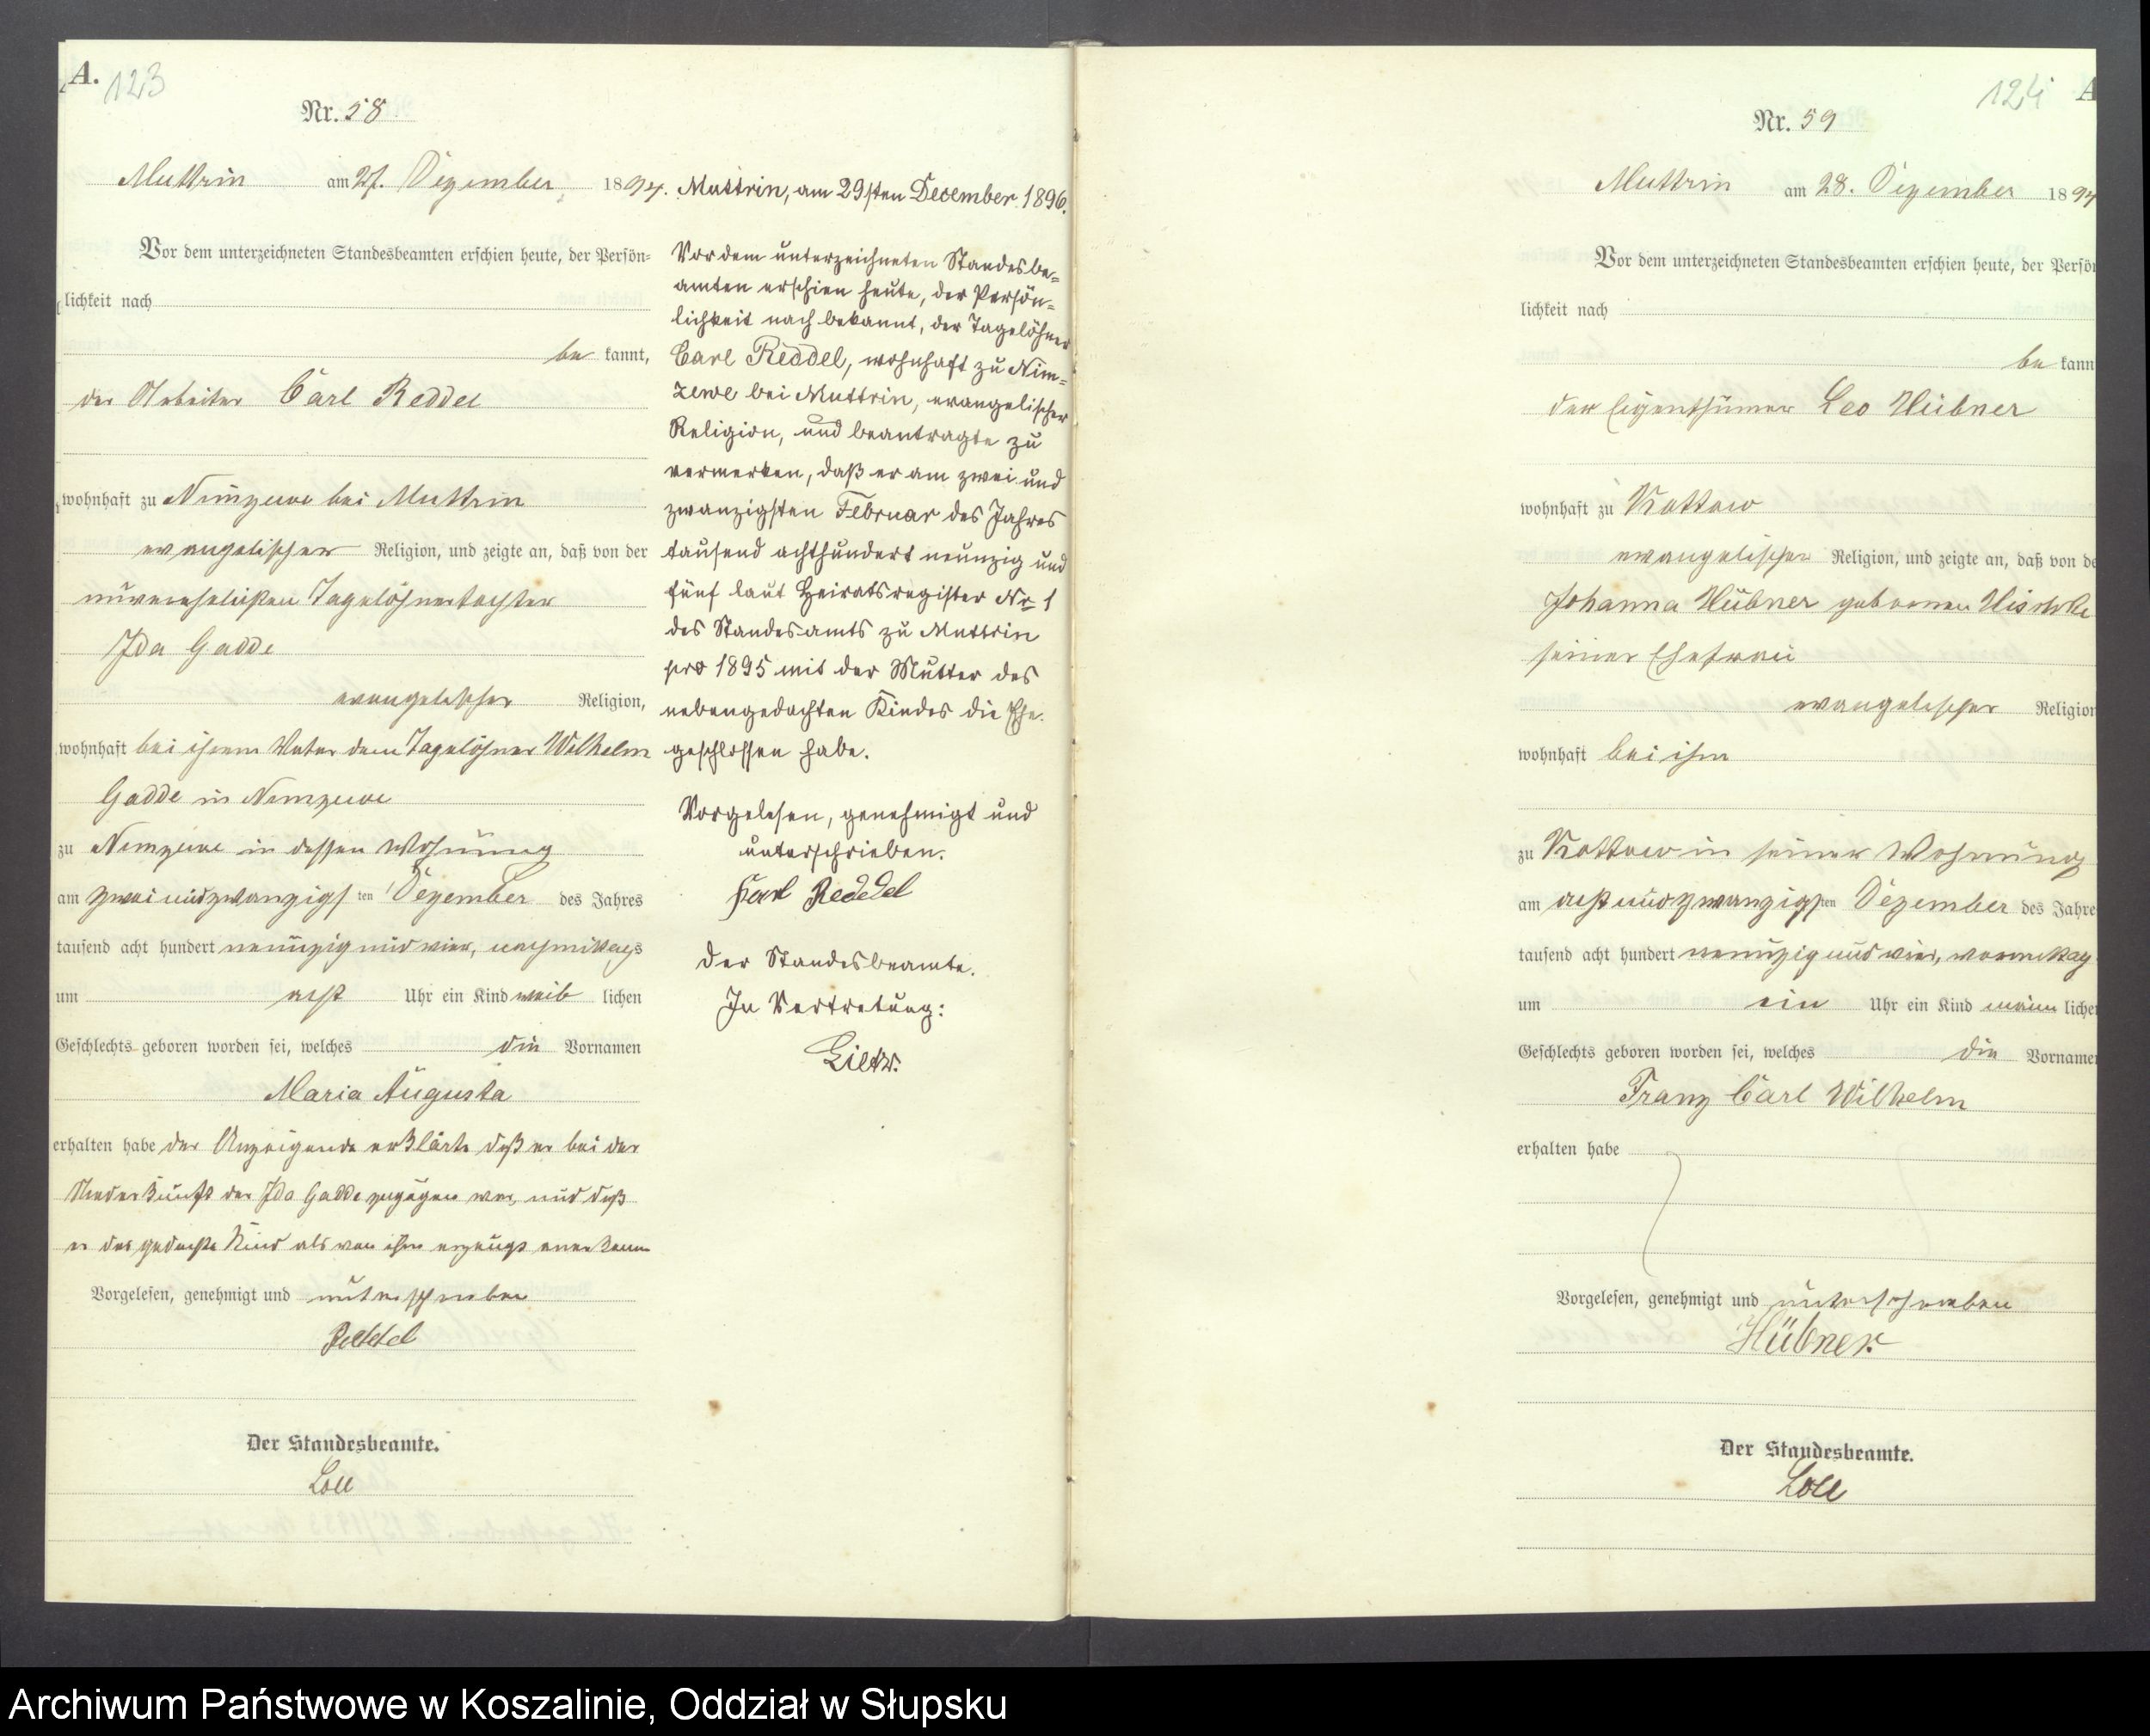 A. 123
Nr. 58
Muttrin am 27. Dezember 1894.
Vor dem unterzeichneten Standesbeamten erschien heute, der Persön=
lichkeit nach
be kannt,
der Arbeiter Carl Reddel
wohnhaft zu Nimzewe bei Muttrin
evangelischer Religion, und zeigte an, daß von der
unverehelichten Tagelöhnertochter
Ida Gadde
evangelischer Religion,
wohnhaft bei ihrem Vater dem Tagelöhner Wilhelm
Gadde in Nimzewe
zu Nimzewe in dessen Wohnung
am zwei und zwanzigsten Dezember des Jahres
tausend acht hundert neunzig und vier, nachmittags
um acht Uhr ein Kind weib lichen
Geschlechts geboren worden sei, welches die Vornamen
Maria Augusta
erhalten habe der Anzeigende erklärte daß er bei der
Niederkunft der Ida Gadde zugegen war, und daß
er das gedachte Kind als von ihm erzeugt anerkenne
Vorgelesen, genehmigt und unterschrieben
Reddel
Der Standesbeamte.
Loll
Muttrin, am 29sten December 1896.
Vor dem unterzeichneten Standesbe=
amten erschien heute, der Persön=
lichkeit nach bekannt, der Tagelöhner
Carl Reddel, wohnhaft zu Nim=
zewe bei Muttrin, evangelischer
Religion, und beantragte zu
vermerken, daß er am zwei und
zwanzigsten Februar des Jahres
tausend achthundert neunzig und
fünf laut Heiratsregister Nr 1
des Standesamts zu Muttrin
pro 1895 mit der Mutter des
nebengedachten Kindes die Ehe
geschlossen habe.
Vorgelesen, genehmigt und
unterschrieben.
Karl Reddel
Der Standesbeamte.
In Vertretung:
Lietz.
124 A
Nr. 59
Muttrin am 28. Dezember 1894
Vor dem unterzeichneten Standesbeamten erschien heute, der Persön
lichkeit nach
be kann
der Eigenthümer Leo Hübner
wohnhaft zu Kottow
evangelischer Religion, und zeigte an, daß von de
Johanna Hübner geborenen
seiner Ehefrau
evangelischer Religion
wohnhaft bei ihm
zu Kottow in seiner Wohnung
am acht und zwanzigsten Dezember des Jahre
tausend acht hundert neunzig und vier, vormittag
um ein Uhr ein Kind männ liche
Geschlechts geboren worden sei, welches die Vorname
Franz Carl Wilhelm
erhalten habe
Vorgelesen, genehmigt und unterschrieben
Hübner.
Der Standesbeamte.
Loll
Archiwum Państwowe w Koszalinie, Oddział w Słupsku